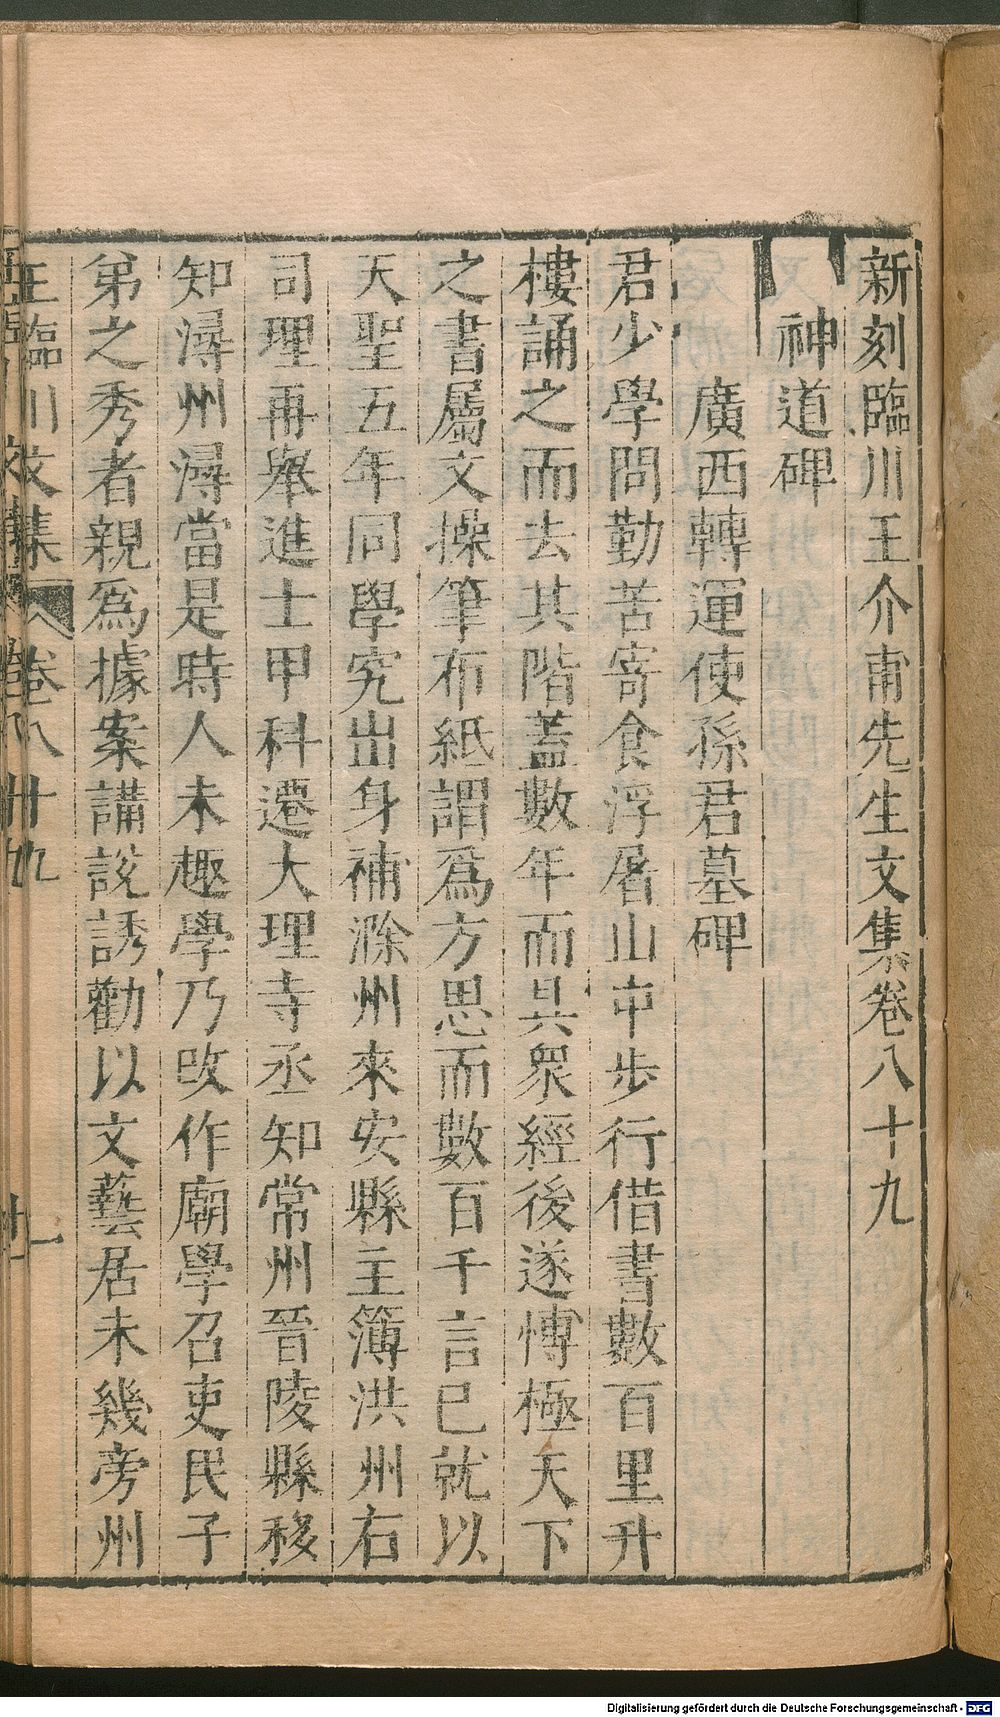 新刻臨川王介甫先生文集卷八十九
神道碑
廣西轉運使孫君墓碑
君少學問勤苦寄食浮屠山中步行借書數百里升
樓誦之而去其階蓋數年而具眾經後遂慱極天下
之書屬文操筆布紙謂爲方思而數百千言已就以
天聖五年同學究出身補滁州來安縣主簿洪州右
司理再舉進士甲科遷大理寺丞知常州晉陵縣移
知潯州潯當是時人未趣學乃改作廟學召吏民子
弟之秀者親爲據案講說誘勸以文藝居未幾旁州
王臨川文集 卷八十九 一
Digitalisierung gefördert durch die Deutsche Forschungsgemeinschaft - DFG